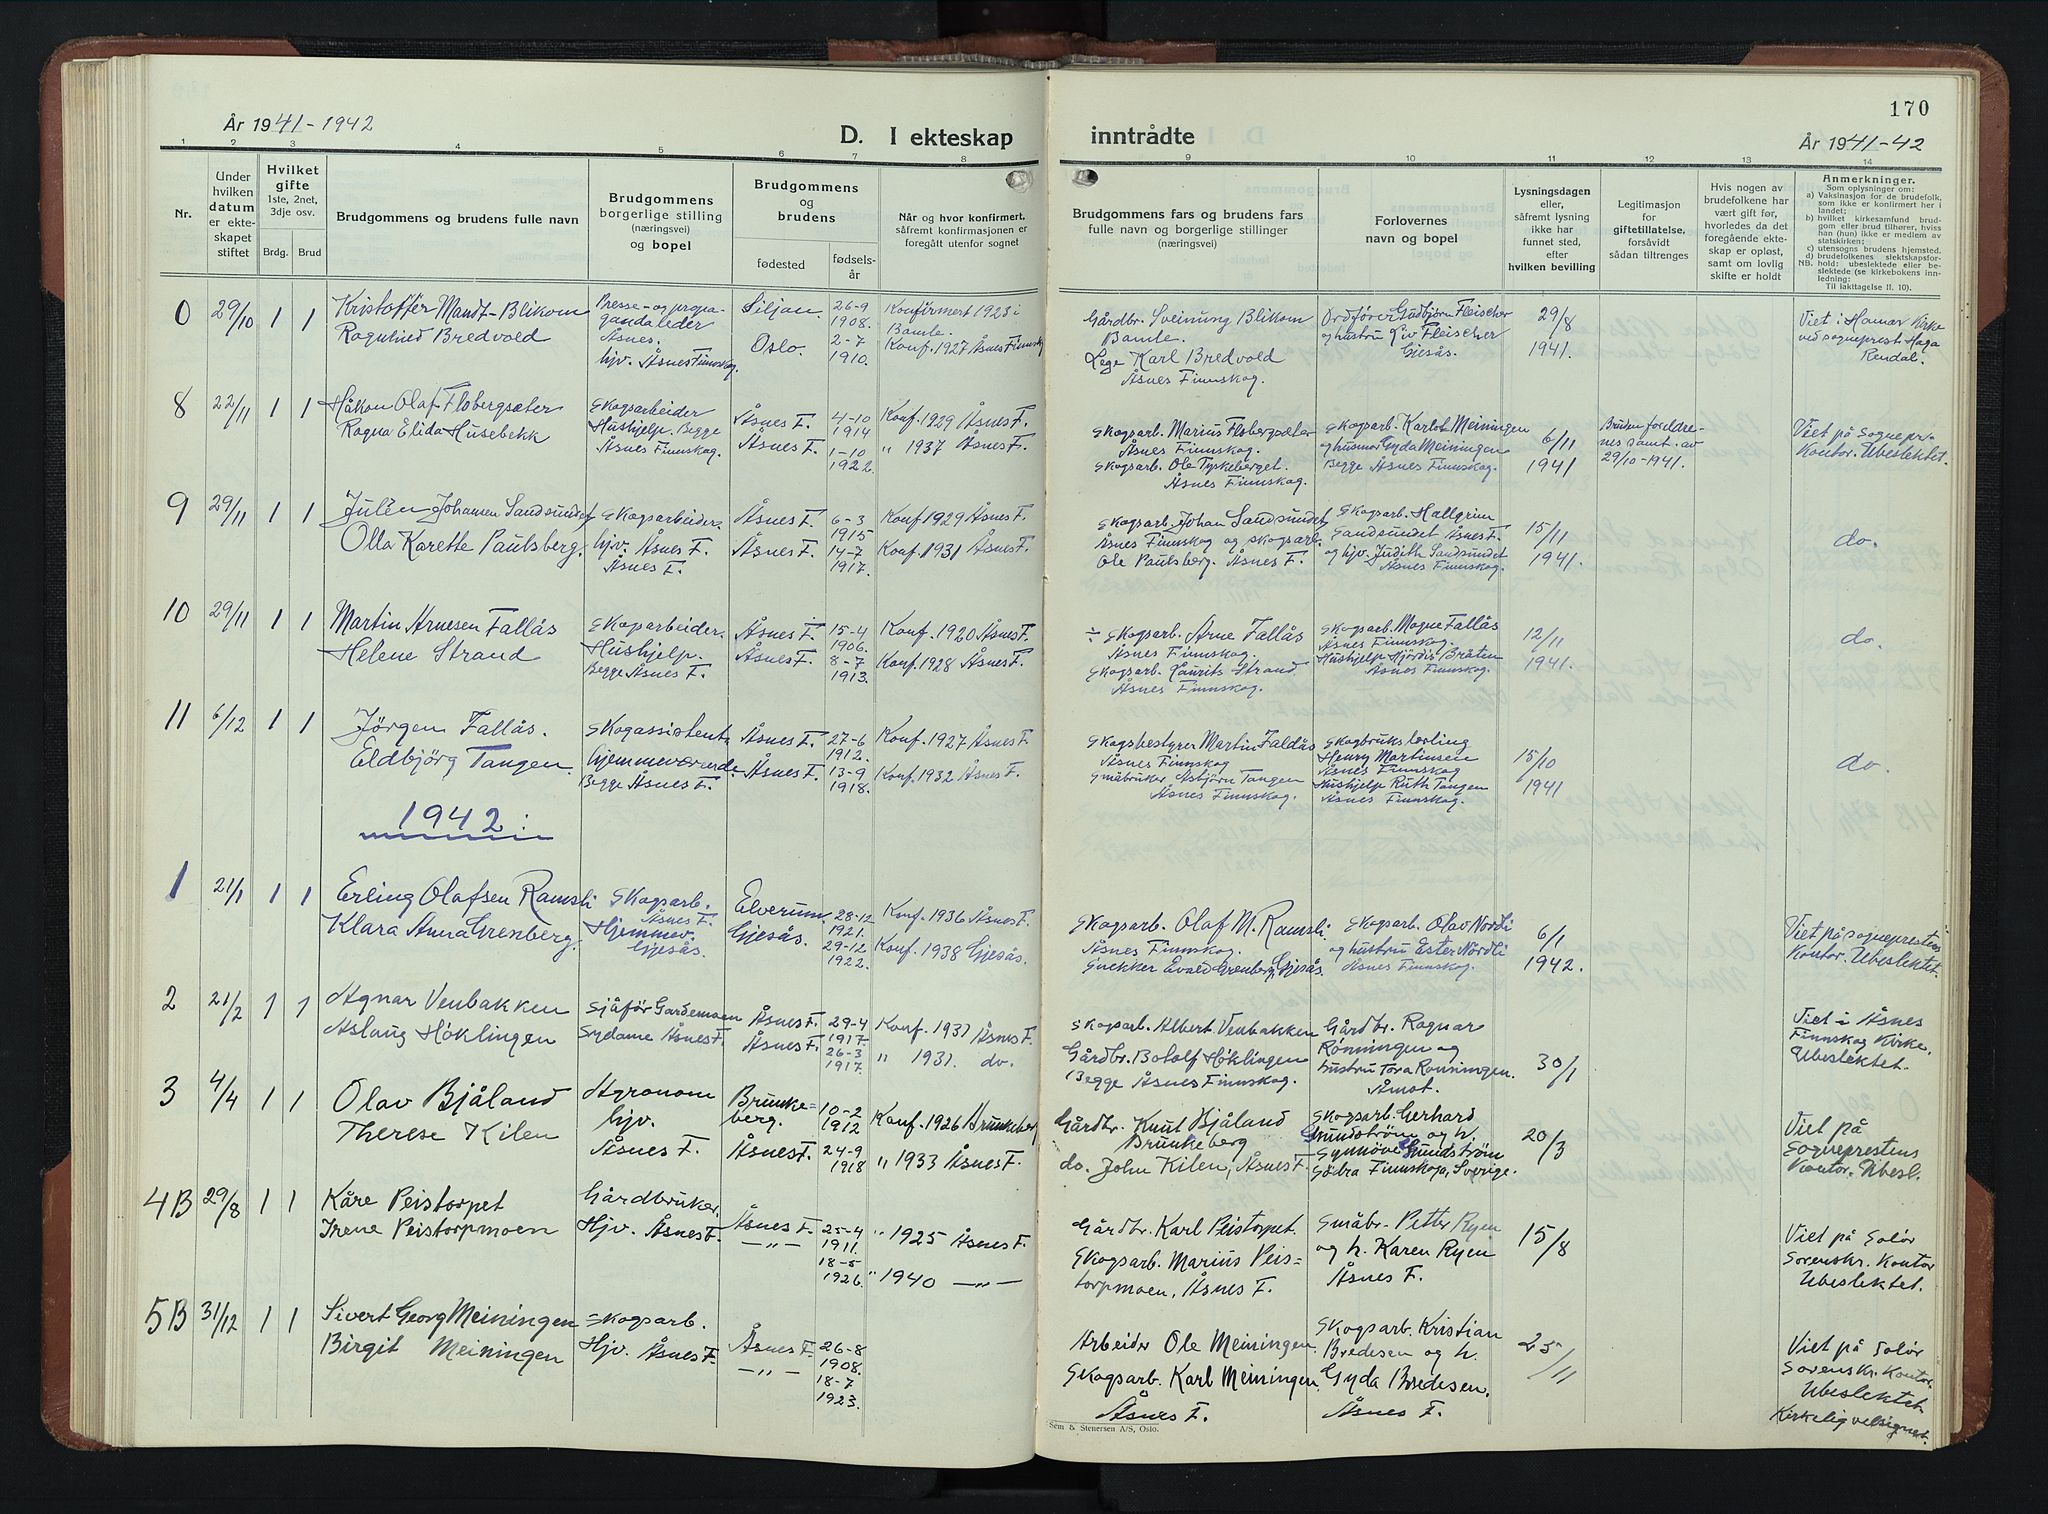 170
År 1941-1942
D. I ekteskap
inntrådte
År 1941-42
1 2 3 4 5 6 7 8 9 10 11 12 13 14
Nr.
Under
hvilken
datum
er ekte-
skapet
stiftet
Hvilket
gifte
1ste, 2net,
3dje osv.
Brdg. Brud
Brudgommens og brudens fulle navn
Brudgommens
borgerlige stilling
(næringsvei)
og bopel
Brudgommens
og
brudens
fødested
fødsels-
år
Når og hvor konfirmert,
såfremt konfirmasjonen er
foregått utenfor sognet
Brudgommens fars og brudens fars
fulle navn og borgerlige stillinger
(næringsvei)
Forlovernes
navn og bopel
Lysningsdagen
eller,
såfremt lysning
ikke har
funnet sted,
efter
hvilken bevilling
Legitimasjon
for
giftetillatelse,
forsåvidt
sådan tiltrenges
Hvis nogen av
brudefolkene har
vært gift før,
hvorledes da det
foregående ekte-
skap er opløst,
samt om lovlig
skifte er holdt
Anmerkninger.
Som oplysninger om:
a) Vaksinasjon for de brudefolk,
som ikke er konfirmert her i
landet;
b) hvilket kirkesamfund brud-
gom eller brud tilhører, hviss
han (hun) ikke er medlem av
statskirken;
c) utensogns brudens hjemsted.
d) brudefolkenes slektskapsfor-
NB. hold: ubeslektede eller be-
slektede (se kirkebokens inn-
ledning:
Til iakttagelse II. 10).
0 29/10 1 1
Kristoffer Mandt-Blikom
Ragnhild Bredvold
Presse- og propa-
gandaleder
Åsnes.
hjv. Åsnes Finnskog.
Siljan.
Oslo.
26-9
1908.
2-7
1910.
Konfirmert 1923 i
Bamle.
Konf. 1927 Åsnes Finnsk.
Gårdbr. Sveinung Blikom
Bamle.
Lege Karl Bredvold
Åsnes Finnskog.
Ordfører Gudbjørn Fleischer
og hustru Liv Fleischer
Gjesås.
29/8
1941.
Viet i Hamar Kirke
ved sogneprest Haga
Rendal.
8 22/11 1 1
Håkon Olaf Flobergseter
Ragna Elida Husebekk
Skogsarbeider
Hushjelp. Begge
Åsnes Finnskog.
Åsnes F.
Åsnes F.
4-10
1914
1-10
1922.
Konf. 1929 Åsnes F.
" 1937 Åsnes F.
Skogsarb. Marius Flobergseter
Åsnes Finnskog.
Skogsarb. Ole Tyskeberget.
Åsnes Finnskog.
Skogsarb. Karlot Meiningen
og husmor Gyda Meiningen
Begge Åsnes Finnskog.
6/11
1941
Brudens foreldre-
nes samt. av
29/10-1941.
Viet på Sognepr.-
Kontor. Ubeslektet.
9 29/11 1 1
Julén Johansen Sandsundet
Olla Karette Paulsberg.
Skogsarbeider.
hjv. Åsnes F.
Åsnes F.
Åsnes F.
Åsnes F.
6-3
1915
14-7
1917.
Konf 1929 Åsnes F.
Konf. 1931 Åsnes F.
Skogsarb. Johan Sandsundet
Åsnes Finnskog og skogsarb.
Ole Paulsberg. Åsnes F.
Skogsarb. Hallgrim
Sandsundet Åsnes F.
og hjv. Judith Sandsundet
Åsnes Finnskog.
15/11
1941.
do.
10 29/11 1 1
Martin Arnesen Fallås
Helene Strand
Skogarbeider.
Hushjelp.
Begge Åsnes F.
Åsnes F.
Åsnes F.
15-4
1906.
8-7
1913.
Konf. 1920 Åsnes F.
Konf. 1928 Åsnes F.
÷ Skogsarb. Arne Fallås
Åsnes Finnskog.
Skogsarb. Laurits Strand
Åsnes Finnskog.
Skogsarb. Magne Fallås
Åsnes Finnskog.
Hushjelp Hjördis Bråten
Åsnes Finnskog.
12/11
1941.
do.
11 6/12 1 1
Jörgen Fallås.
Eldbjörg Tangen.
Skogassistent
hjemmeværende
Begge Åsnes F.
Åsnes F.
Åsnes F.
27-6
1912.
13-9
1918.
Konf. 1927 Åsnes F.
Konf. 1932 Åsnes F.
Skogsbestyrer Martin Faldås
Åsnes Finnskog
Småbruker Asbjörn Tangen
Åsnes Finnskog.
Skogbrukslærling
Henry Martinsen
Åsnes Finnskog
Hushjelp Ruth Tangen
Åsnes Finnskog.
15/10
1941
do.
1942:
1 21/1 1 1
Erling Olafsen Ramsli
Klara Anna Grenberg.
Skogsarb.
Åsnes F.
Hjemmev.
Gjesås.
Elverum.
Gjesås.
28-12
1921.
29-12
1922.
Konf. 1936 Åsnes F.
Konf. 1938 Gjesås.
Skogsarb. Olaf M. Ramsli.
Åsnes Finnskog.
Snekker Evald Grenberg, Gjesås.
Skogsarb. Olav Nordli
og hustru Ester Nordli
Åsnes Finnskog.
6/1
1942.
Viet på sogneprestens
Kontor. Ubeslektet.
2 21/2 1 1
Agnar Venbakken
Aslaug Höklingen
Sjåför Gardemoen
Sydame Åsnes F.
Åsnes F.
Åsnes F.
29-4
1917.
26-3
1917.
Konf. 1931 Åsnes F.
" 1931. do.
Skogsarb. Albert Venbakken
Gårdbr. Botolf Höklingen
Begge Åsnes Finnskog.
Gårdbr. Ragnar
Rönningen og
hustru Tora Rönningen.
Åmot.
30/1
Viet i Åsnes
Finnskog Kirke.
Ubeslektet.
3 4/4 1 1
Olav Bjåland
Therese Kilen
Agronom
hjv.
Åsnes F.
Brunke-
berg.
Åsnes F.
10-2
1912
24-9
1918
Konf. 1926 Brunkeberg
" 1933 Åsnes F.
Gårdbr. Knut Bjåland
Brunkeberg
do. John Kilen, Åsnes F.
Skogsarb. Gerhard
Sundström og h.
Synnöve Sundström
Södra Finnskoga, Sverige.
20/3
Viet på
Sogneprestens
Kontor. Ubesl.
4B 29/8 1 1
Kåre Peistorpet
Irene Peistorpmoen
Gårdbruker.
Hjv. Åsnes F.
Åsnes F.
— " —
25-4
1911.
18-5
1926.
" 1925 Åsnes F.
" 1940 — " —
Gårdbr. Karl Peistorpet.
Skogsarb. Marius Peis-
torpmoen, Åsnes F.
Småbr. Petter Ryen
og h. Karen Ryen
Åsnes F.
15/8
Viet på Solör
Sorenskr. Kontor
Ubeslektet.
5B 31/12 1 1
Sivert Georg Meiningen
Birgit Meiningen
Skogsarb.
Hjv. Åsnes F.
Åsnes F.
— " —
26-8
1908.
18-7
1923.
Arbeider Ole Meiningen.
Skogsarb. Karl Meiningen.
Åsnes F.
Skogsarb. Kristian
Bredesen og h.
Gyda Bredesen.
Åsnes F.
25/11
Viet på Solör
Sorenskr. Kontor.
Ubeslektet.
Kirkelig velsignet.
Sem & Stenersen A/S, Oslo.